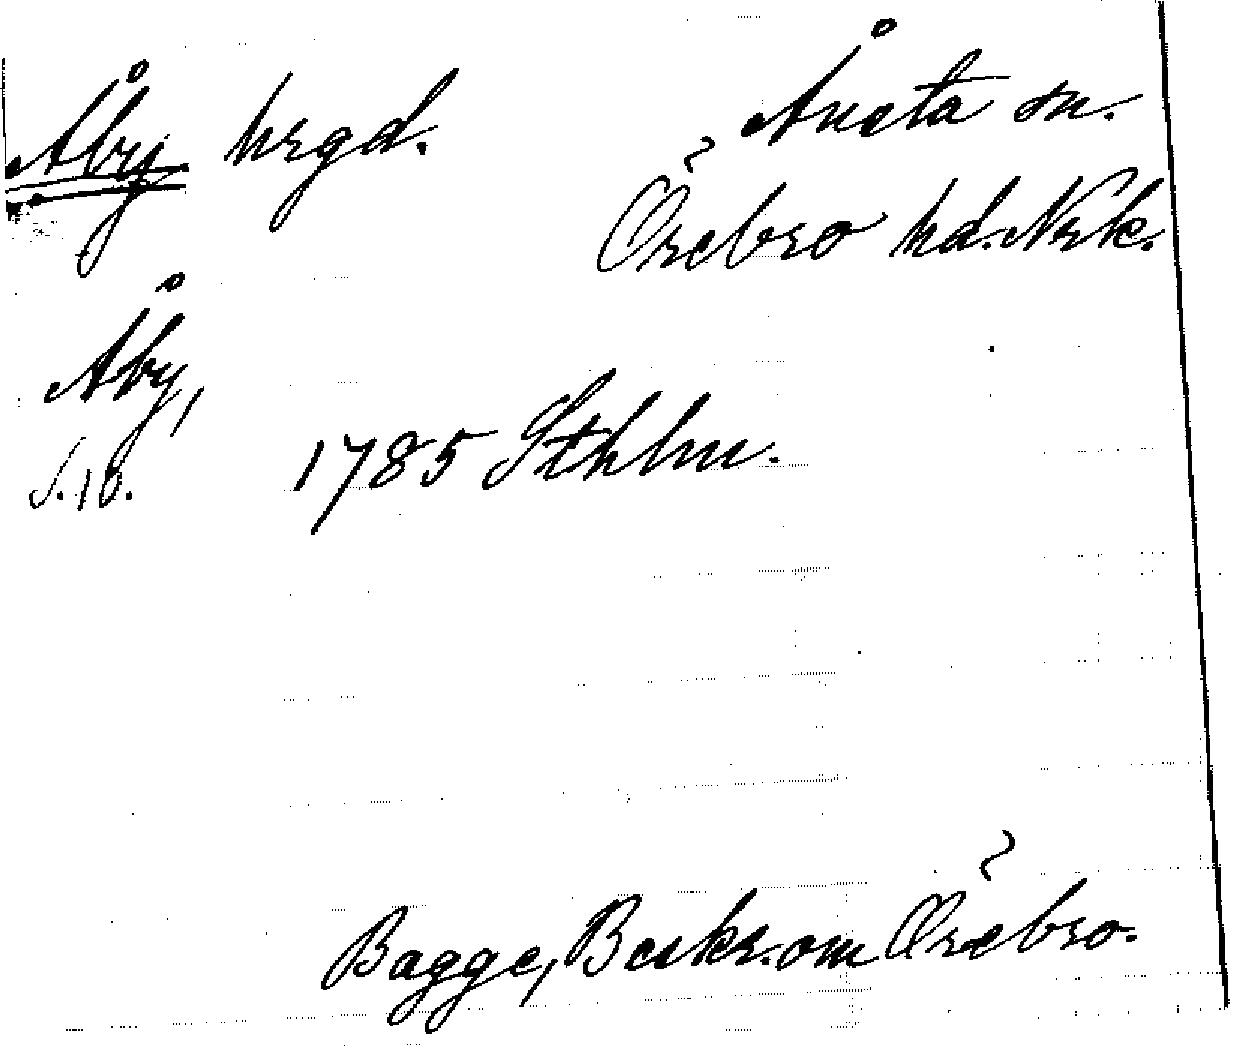 Åby hrgd. Ånsta sn.
Örebro hd. Nrk.
Åby,
S. 10. 1785 Sthlm.
Bagge, Beskr. om Örebro.